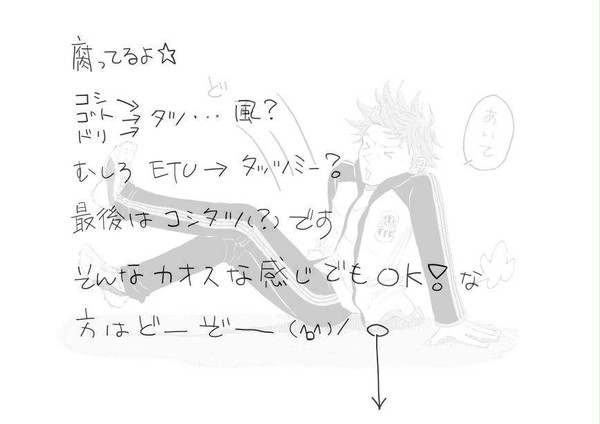 腐ってるよ☆
ど
コシ→
ゴト→ タツ・・・風?
ドリ→
あいて
むしろ ETU→タッツミー?
最後はコシタツ(?)です
そんなカオスな感じでもOK!な
方はどーぞー